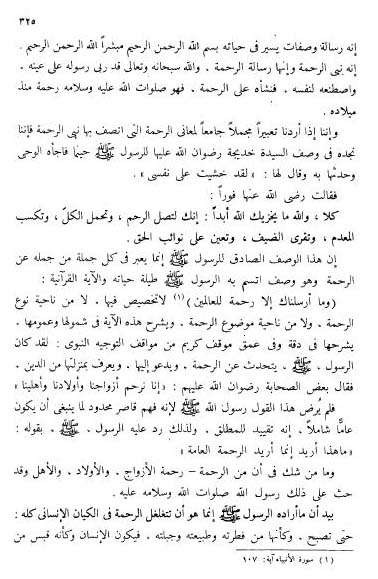 ٣٢٥
إنه رسالة وصفات يسير فى حياته بسم الله الرحمن الرحيم مبشراً الله الرحمن الرحيم .
إنه نبى الرحمة وإنها رسالة الرحمة . والله سبحانه وتعالى قد ربى رسوله على عينه .
واصطنعه لنفسه . فنشأه على الرحمة . فهو صلوات الله عليه وسلامه رحمة منذ
ميلاده .
وإننا إذا أردنا تعبيراً مجملاً جامعاً لمعانى الرحمة التى اتصف بها نبى الرحمة فإننا
نجده فى وصف السيدة خديجة رضوان الله عليها للرسول ﷺ حينما فاجأه الوحى
وحدثها به وقال لها : « لقد خشيت على نفسى » .
فقالت رضى الله عنها فوراً :
كلا ، والله ما يخزيك الله أبداً : إنك لتصل الرحم ، وتحمل الكلّ ، وتكسب
المعدم ، وتقرى الضيف ، وتعين على نوائب الحق .
إن هذا الوصف الصادق للرسول ﷺ إنما يعبر فى كل جملة من جمله عن
الرحمة وهو وصف اتسم به الرسول ﷺ طيلة حياته والآية القرآنية :
(وما أرسلناك إلا رحمة للعالمين) (١) لاتخصيص فيها . لا من ناحية نوع
الرحمة . ولا من ناحية موضوع الرحمة . ويشرح هذه الآية فى شمولها وعمومها .
يشرحها فى دقة وفى عمق موقف كريم من مواقف التوجيه النبوى : لقد كان
الرسول . ﷺ . يتحدث عن الرحمة . ويدعو إليها . ويعرف بمنزلتها من الدين .
فقال بعض الصحابة رضوان الله عليهم : «إنا نرحم أزواجنا وأولادنا وأهلينا»
فلم يُرض هذا القول رسول الله ﷺ لإنه فهم قاصر محدود لما ينبغى أن يكون
عامًّا شاملاً . إنه تقييد للمطلق . ولذلك رد عليه الرسول . ﷺ . بقوله :
«ماهذا أريد إنما أريد الرحمة العامة»
وما من شك فى أن من الرحمة – رحمة الأزواج . والأولاد . والأهل وقد
حث على ذلك رسول الله صلوات الله وسلامه عليه .
بيد أن ماأراده الرسول ﷺ إنما هو أن تتغلغل الرحمة فى الكيان الإنسانى كله :
حتى تصبح . وكأنها من فطرته وطبيعته وجبلته . فيكون الإنسان وكأنه قبس من
(١) سورة الأنبياء آية : ١٠٧